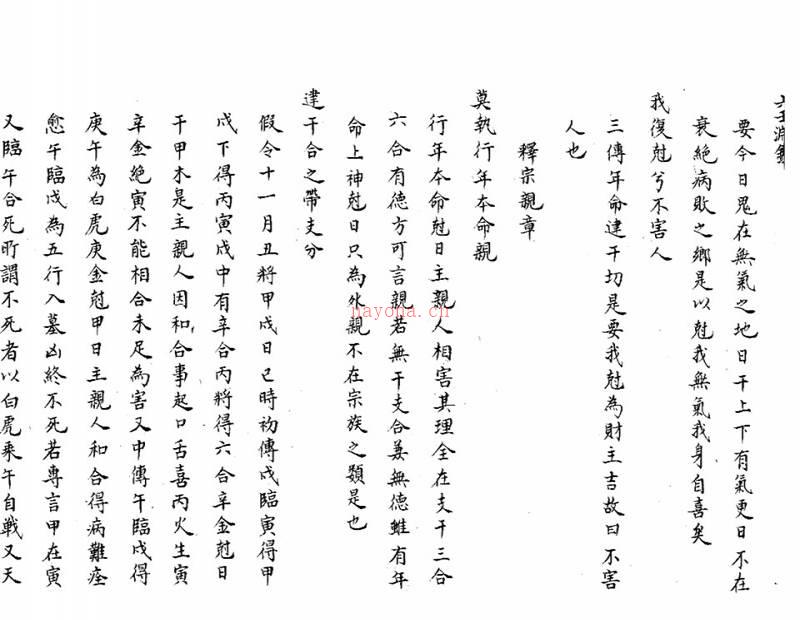 六壬淵鑑
要今日鬼在無氣之地日干上下有氣更日不在
衰絕病敗之鄉是以尅我無氣我身自喜矣
我復尅兮不害人
三傳年命建干切是要我尅為財主吉故曰不害
人也
釋宗親章
莫執行年本命親
行年本命尅日主親人相害其理全在支干三合
六合有德方可言親若無干支合兼無德雖有年
命上神尅日只為外親不在宗族之類是也
建干合之帶支分
假令十一月丑將甲戌日巳時初傳戌臨寅得甲
戌下得丙寅戌中有辛合丙將得六合辛金尅日
干甲木是主親人因和合事起口舌喜丙火生寅
辛金絕寅不能相合未足為害又中傳午臨戌得
庚午為白虎庚金尅甲日主親人和合得病難痊
愈午臨戌為五行入墓凶終不死若專言甲在寅
又臨午合死所謂不死者以白虎乘午自戰又天
nayona.cn